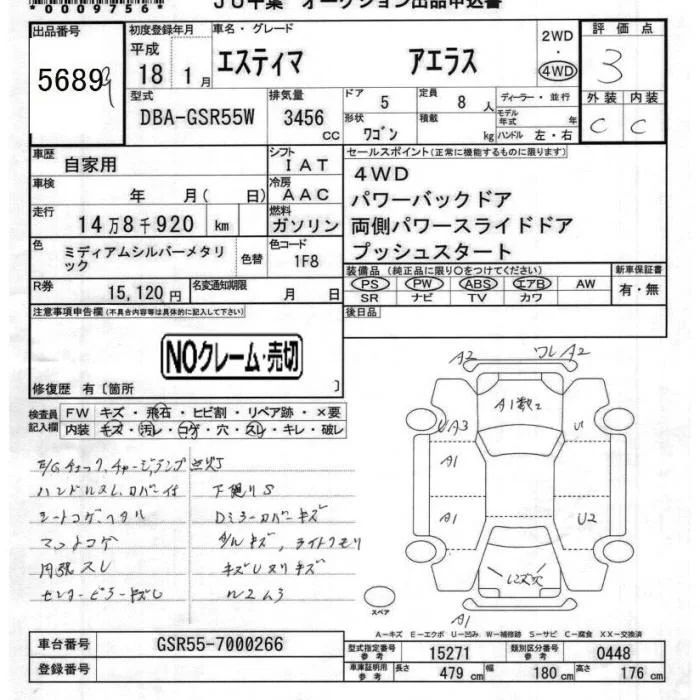 *0009756*
JU千葉 オークション出品申込書
出品番号
5689
初度登録年月
平成
18 1月
車名・グレード
エスティマ アエラス
2WD
・
4WD
評価点
3
外装 内装
C C
型式
DBA-GSR55W
排気量
3456
cc
ドア
5
定員
8 人
ディーラー・並行
モデル
年式 年
形状
ワゴン
積載
kg
ハンドル 左・右
車歴
自家用
シフト
IAT
車検
年 月( 日)
冷房
AAC
走行
14万8千920 km
燃料
ガソリン
色
ミディアムシルバーメタリ
ック
色替
色コード
1F8
R券
15,120円
名変通知期限
月 日
セールスポイント(正常に機能するものに限ります)
4WD
パワーバックドア
両側パワースライドドア
プッシュスタート
装備品(純正品に限り○をつけてください)
PS PW ABS エアB AW
SR ナビ TV カワ
新車保証書
有・無
注意事項申告欄(不具合内容等は具体的に記入して下さい)
後日品
NOクレーム・売切
修復歴 有〔箇所 〕
検査員
記入欄
FW キズ・飛石・ヒビ割・リペア跡・×要
内装 キズ・汚レ・コゲ・穴・スレ・キレ・破レ
E/Gチェック、チャージランプ点灯
ハンドルスレ、カバー付 下廻りS
シートコゲヘタル Dミラーカバーキズ
マットコゲ ダルキズ、ライトクモリ
内張スレ
センターピラーキズ
A2 ワレA2
A1数2
UA3
A1
A1
U
U2
A1
スペア
A-キズ E-エクボ U-凹み W-補修跡 S-サビ C-腐食 XX-交換済
車台番号
GSR55-7000266
登録番号
型式指定番号
参考
15271
類別区分番号
参考
0448
車庫証明用
参考
長さ 479 cm
幅 180 cm
高さ 176 cm